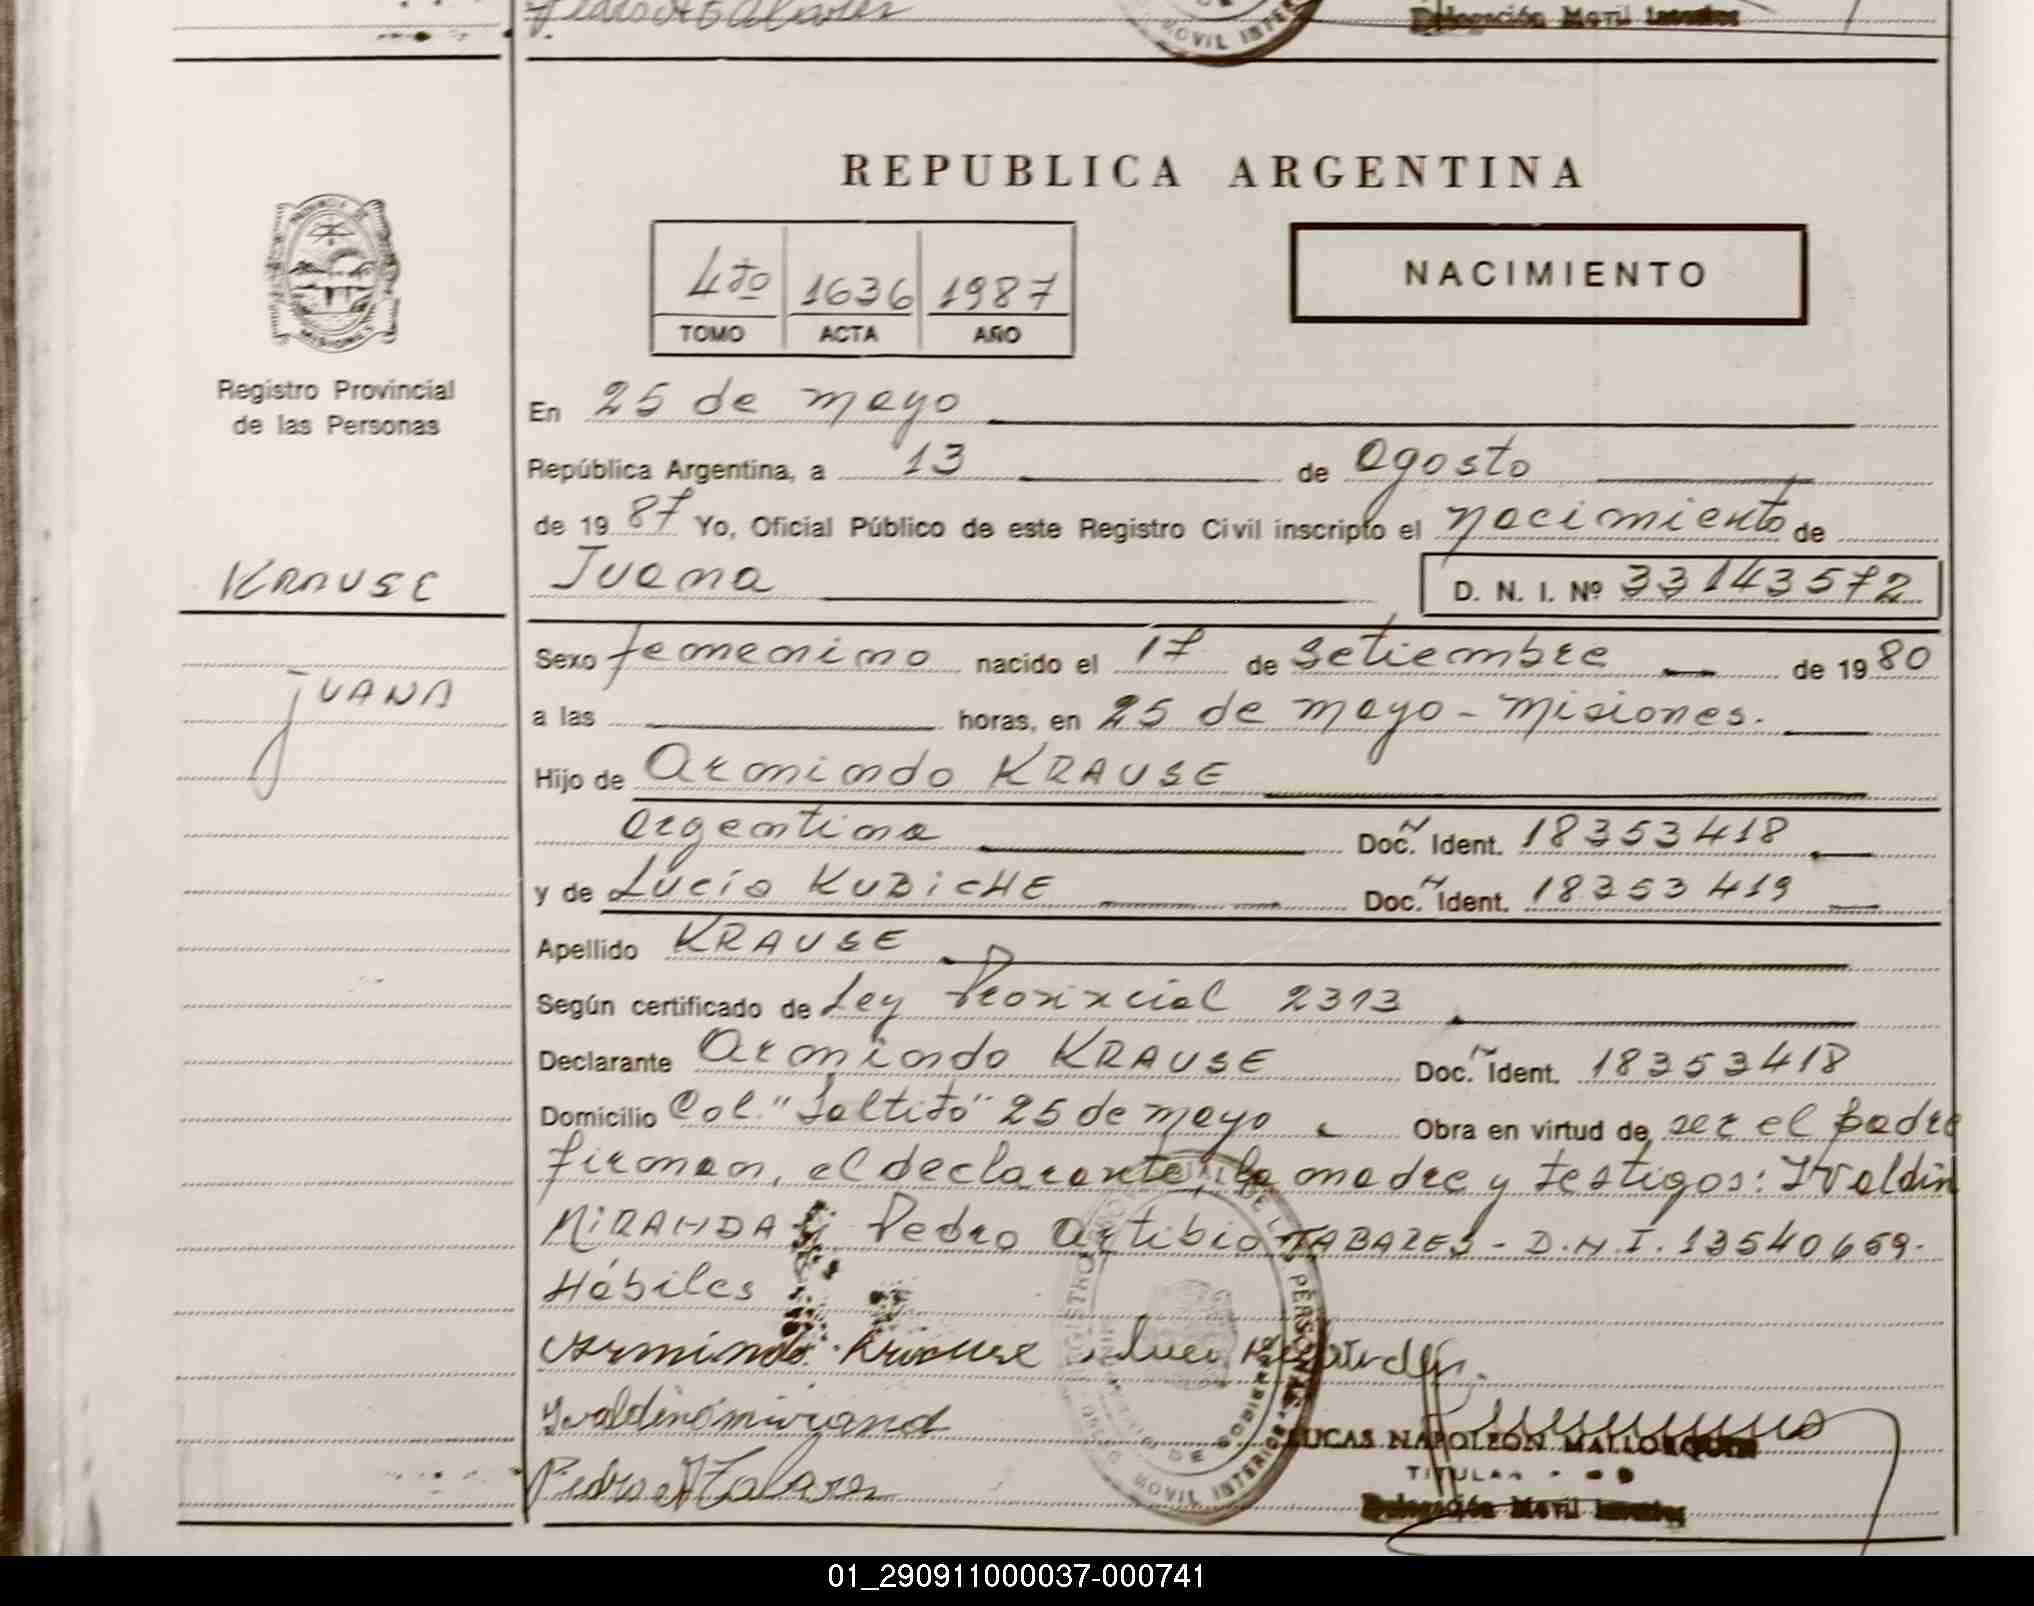 REPUBLICA ARGENTINA
4to 1636 1987
TOMO ACTA AÑO
NACIMIENTO
Registro Provincial
de las Personas
KRAUSE
JUANA
En 25 de mayo
República Argentina, a 13 de agosto
de 1987 Yo, Oficial Público de este Registro Civil inscripto el nacimiento de
Juana D. N. I. Nº 33143572
Sexo femenino nacido el 17 de setiembre de 1980
a las horas, en 25 de mayo - misiones.
Hijo de Armindo KRAUSE
argentina Doc. Ident. 18353418
y de Lucía KUDICHE Doc. Ident. 18353419
Apellido KRAUSE
Según certificado de Ley Provincial 2313
Declarante Armindo KRAUSE Doc. Ident. 18353418
Domicilio Col. "Saltito" 25 de mayo Obra en virtud de ser el padre
firman, el declarante, la madre y testigos: Ivaldin
MIRANDA y Pedro Artibio TABARES - D.N.I. 13540659.
Hábiles
Armindo Krause
Ivaldino mirand
Pedro A Tabares
LUCAS NAPOLEON MALLORQUIN
TITULAR
Delegación Movil
MOVIL INTERIOR
01_290911000037-000741